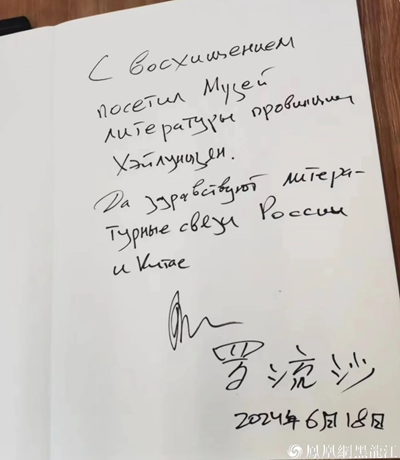 С восхищением
посетил Музей
литературы провинции
Хэйлунцзян.
Да здравствуют литера-
турные связи России
и Китае
罗流沙
2024年6月18日
凤凰網黑龍江